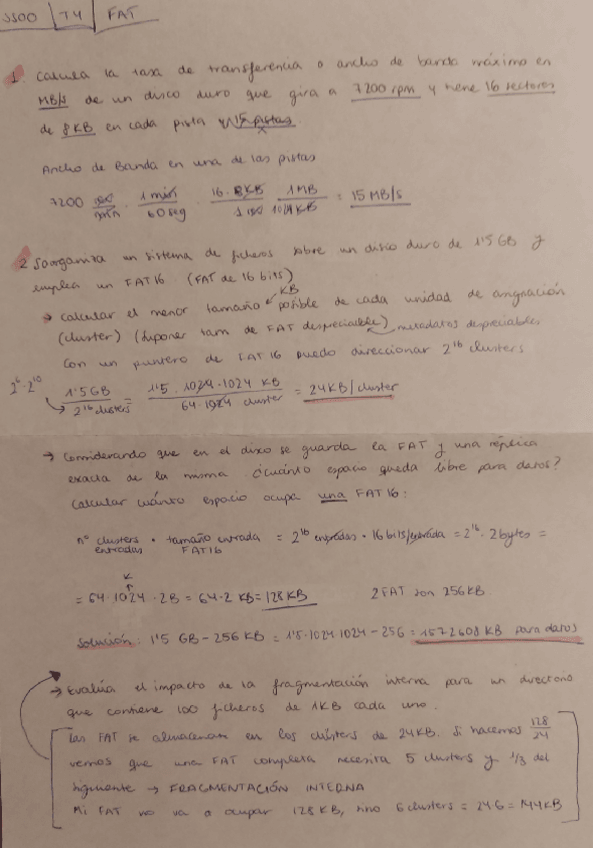 SSOO | T4 | FAT
1. Calcula la tasa de transferencia o ancho de banda máximo en
MB/s de un disco duro que gira a 7200 rpm y tiene 16 sectores
de 8KB en cada pista y 15 pistas.
Ancho de Banda en una de las pistas
7200 rev/min · 1 min/60 seg · 16·8KB/1 rev · 1MB/1024 KB = 15 MB/s
2. Se organiza un sistema de ficheros sobre un disco duro de 1'5 GB y
emplea un FAT16 (FAT de 16 bits)
→ Calcular el menor tamaño KB posible de cada unidad de asignación
(cluster) (suponer tam de FAT despreciable) → metadatos despreciables
Con un puntero de FAT16 puedo direccionar 2^16 clusters
2^6 · 2^10 → 1'5GB/2^16 clusters = 1'5 · 1024 · 1024 KB/64·1024 cluster = 24KB/cluster
→ Considerando que en el disco se guarda la FAT y una réplica
exacta de la misma ¿cuánto espacio queda libre para datos?
Calcular cuánto espacio ocupa una FAT16:
nº clusters entradas · tamaño entrada FAT16 = 2^16 entradas · 16 bits/entrada = 2^16 · 2 bytes =
= 64·1024 K · 2B = 64·2 KB = 128 KB 2 FAT son 256 KB
Solución: 1'5 GB - 256 KB = 1'5·1024·1024 - 256 = 1572608 KB para datos
→ Evalúa el impacto de la fragmentación interna para un directorio
que contiene 100 ficheros de 1KB cada uno.
Las FAT se almacenan en los clústers de 24KB. Si hacemos 128/24
vemos que una FAT completa necesita 5 clusters y 1/3 del
siguiente → FRAGMENTACIÓN INTERNA
Mi FAT no va a ocupar 128KB, sino 6 clusters = 24·6 = 144KB